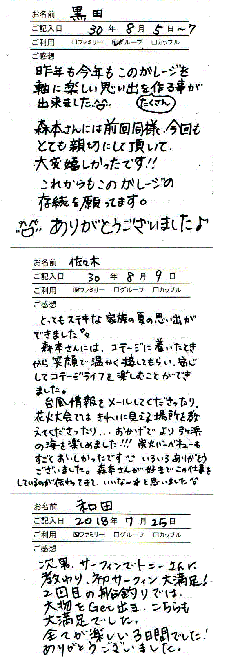 お名前 黒田
ご記入日 30年 8月 5日〜7
ご利用 □ファミリー □グループ □カップル
ご感想
昨年も今年もこのがレージを
軸に楽しい思い出を作る事が
出来ました たくさん
森本さんには前回同様、今回も
とても親切にして頂いて
大変嬉しかったです!!
これからもこのがレージの
存続を願ってます。
ありがとうございました♪
お名前 佐々木
ご記入日 30年 8月 9日
ご利用 ファミリー □グループ □カップル
ご感想
とってもステキな家族の夏の思い出が
できました。
森本さんには、コテージに着いたとき
から笑顔で温かく接してもらい、安心
してコテージライフを楽しむことができ
ました。
台風情報をメールしてくださったり、
花火大会ではキレイに見える場所を教
えてくださったり… おかげで
の海を楽しめました!!! 炭火バーベキューも
すごくおいしかったです いろいろありがとう
ございました。森本さんが好きでこの仕事を
しているのが伝わってきて、いいなーと思いました
お名前 和田
ご記入日 2018年 7月 25日
ご利用 ファミリー □グループ □カップル
ご感想
次男、サーフィンでトニーさんに
教わり、初サーフィン大満足!
2回目の船釣りでは、
大物をGet出来、こちらも
大満足でした。
全てが楽しい3日間でした!
ありがとうございました。